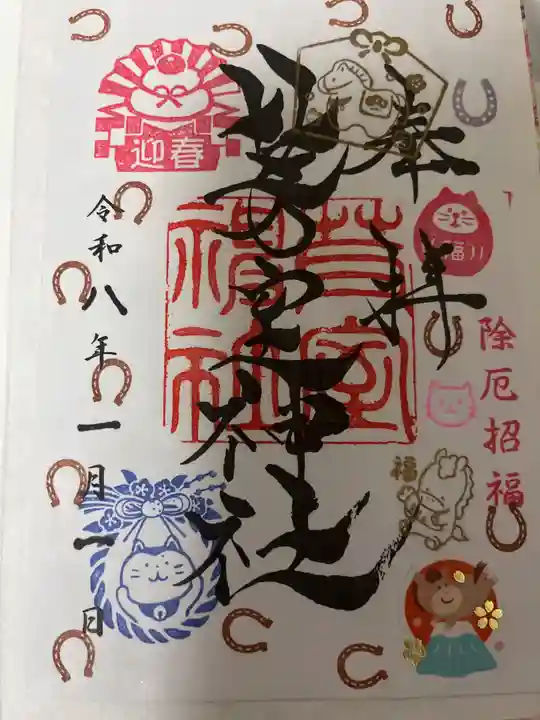 奉拝
神社
神社
令和八年一月一日
迎春
福
除厄招福
福